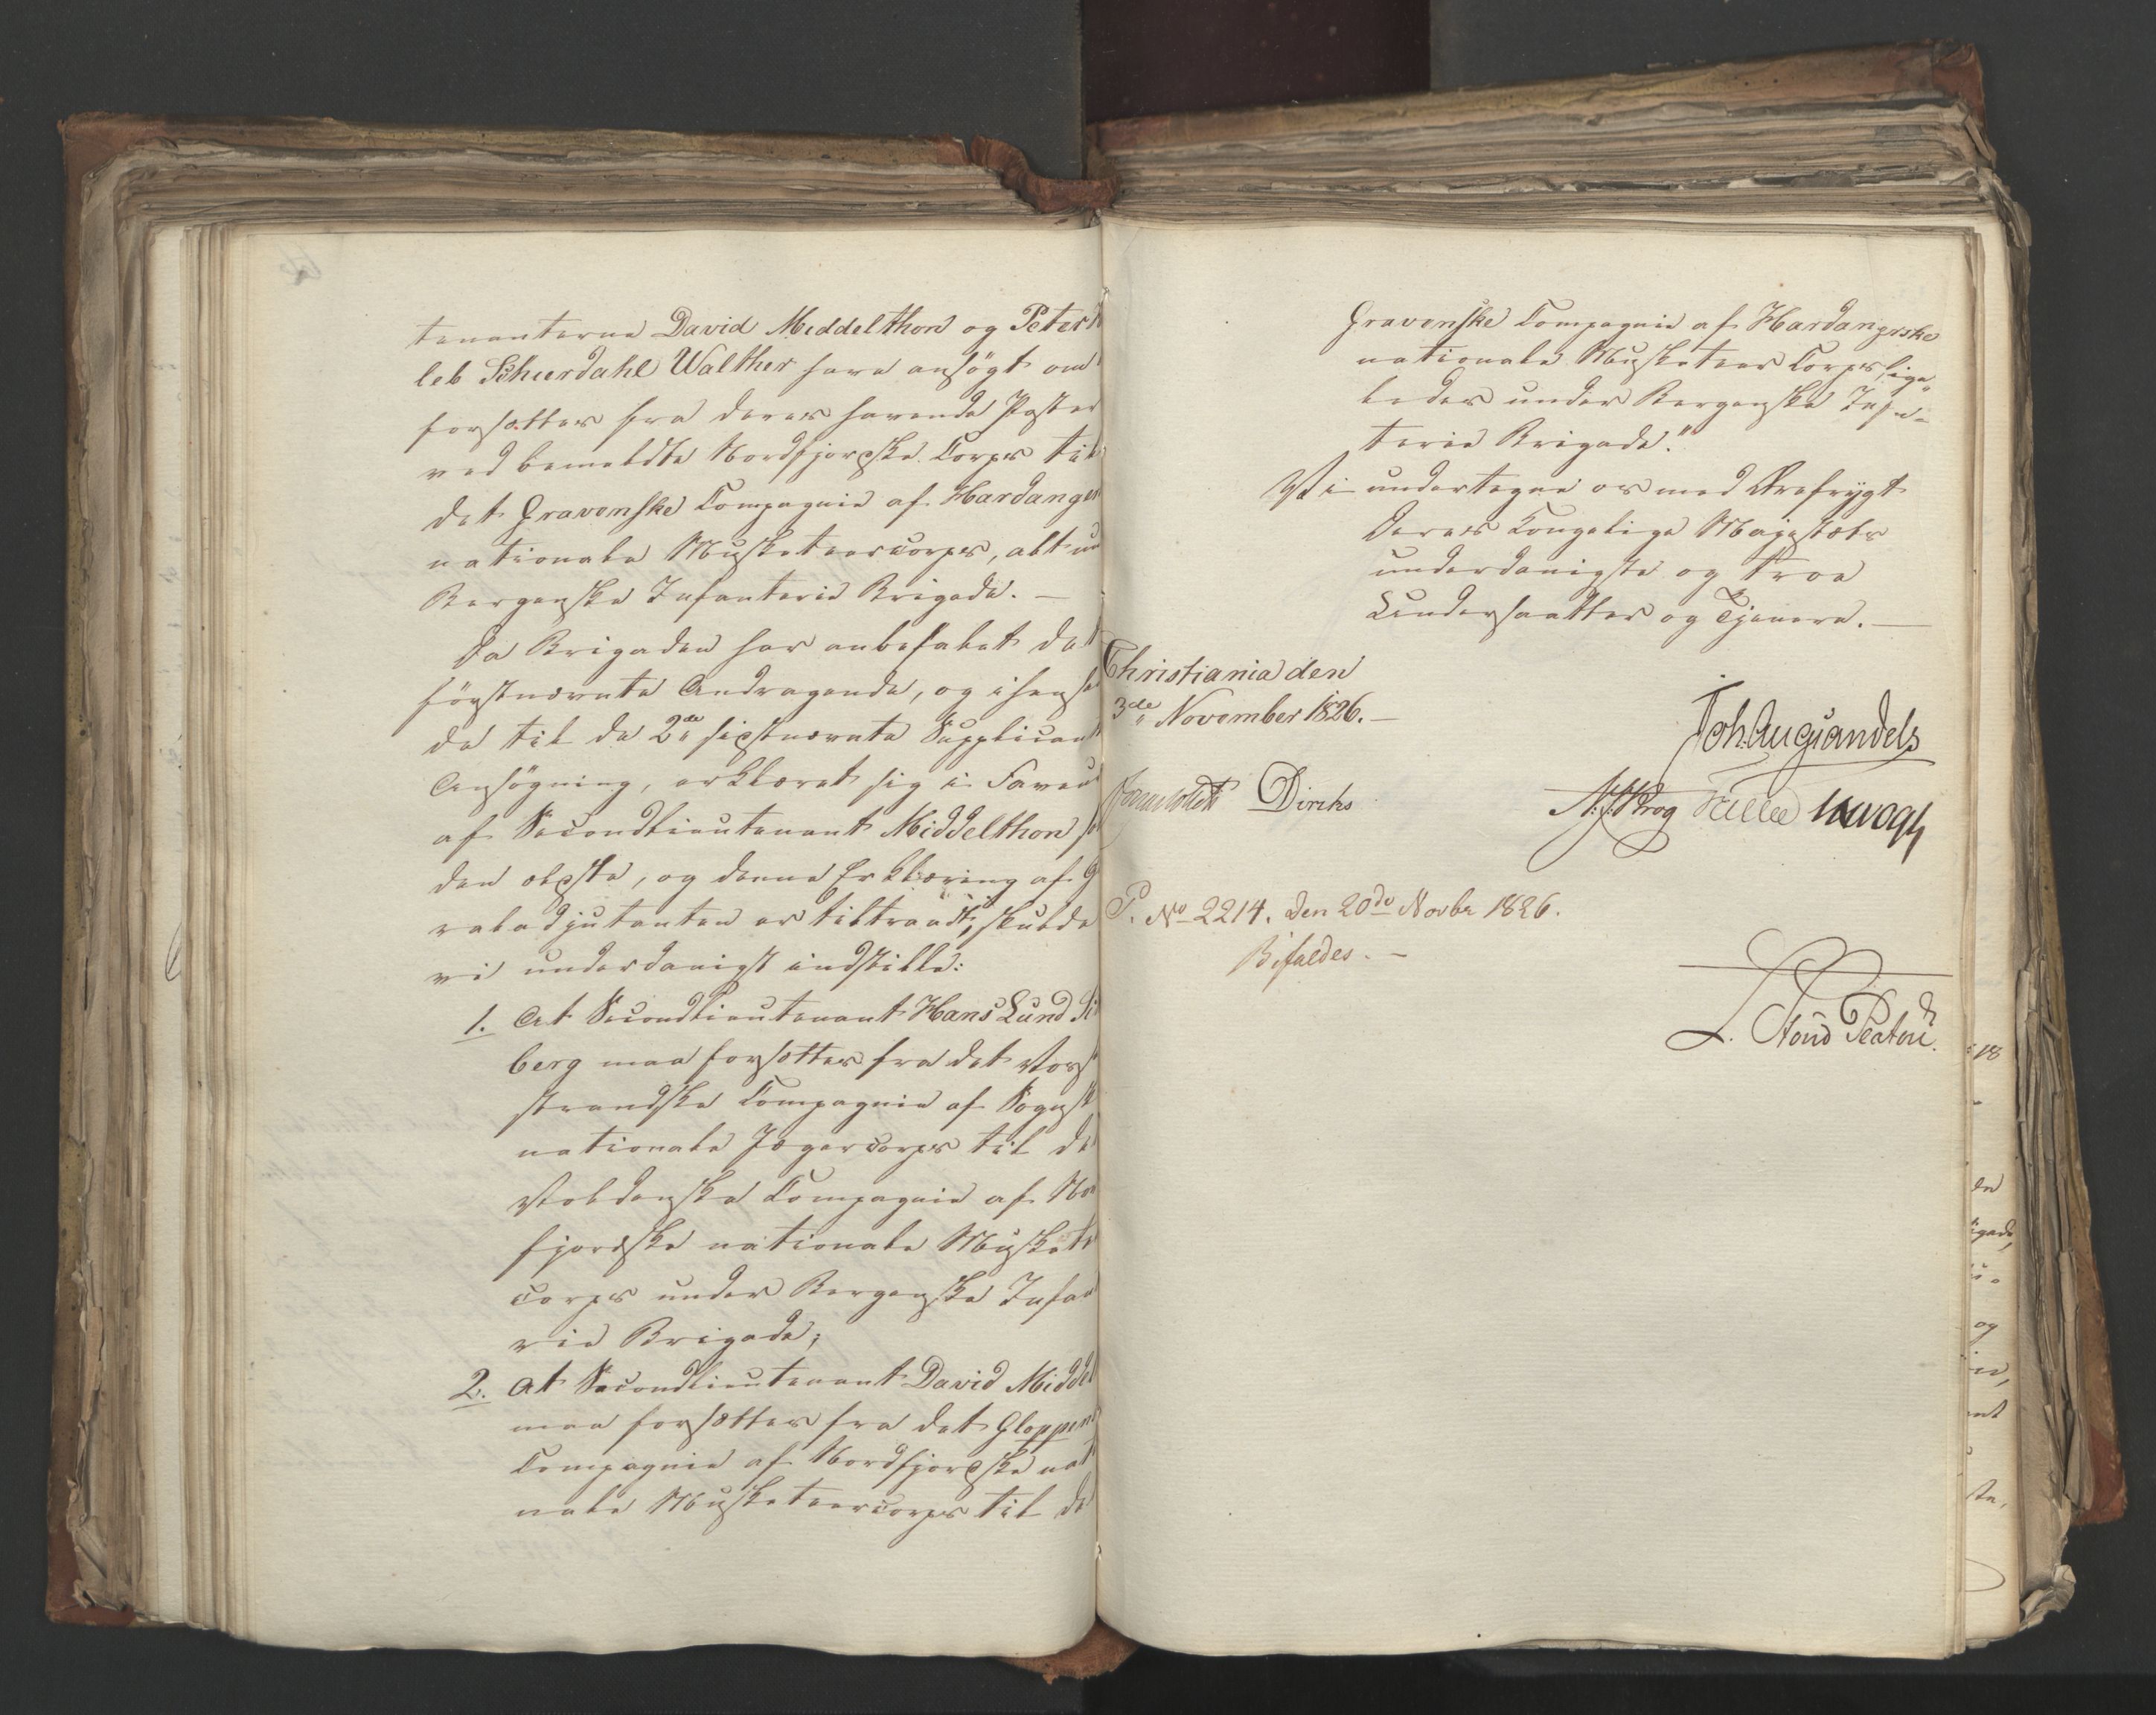 tenanterne David Middelthon og Peter
leb Schierdahl Walther have ansögt om
forsættes fra deres havende Poster
ved bemeldte Nordfjordske Corps til
det Gravenske Compagnie af Hardanger
nationale Musketeercorps, alt un
Bergenske Infanterie Brigade. —
Da Brigaden har anbefalet det
förstnævnte Andragende, og i Hense
de til de 2de sidstnævnte Supplicant
Ansögning, erklæret sig i Faveur
af Secondlieutenant Middelthon so
den ældste, og denne Erklæring af G
raladjutanten er tiltraadt, skulde
vi underdanigst indstille:
1. At Secondlieutenant Hans Lund
berg maa forsættes fra det Vors
strandske Compagnie af Sognske
nationale Jægercorps til de
Voldenske Compagnie af Nor
fjordske nationale Muskete
corps under Bergenske Infan
rie Brigade;
2. At Secondlieutenant David Middel
maa forsættes fra det Gloppens
Compagnie af Nordfjordske nat
nale Musketeercorps til de
Gravenske Compagnie af Hardangerske
nationale Musketeer Corps, lige
ledes under Bergenske Infan-
terie Brigade."
Vi undertegne os med Ærefrygt
Deres Kongelige Majestæts
underdanigste og troe
Undersaatter og Tjenere. —
Christiania den
3de November 1826. —
Joh. Aug. Sandels
Dircks
Krog
P. No 2214. den 20de Novbr 1826.
Bifaldes. —